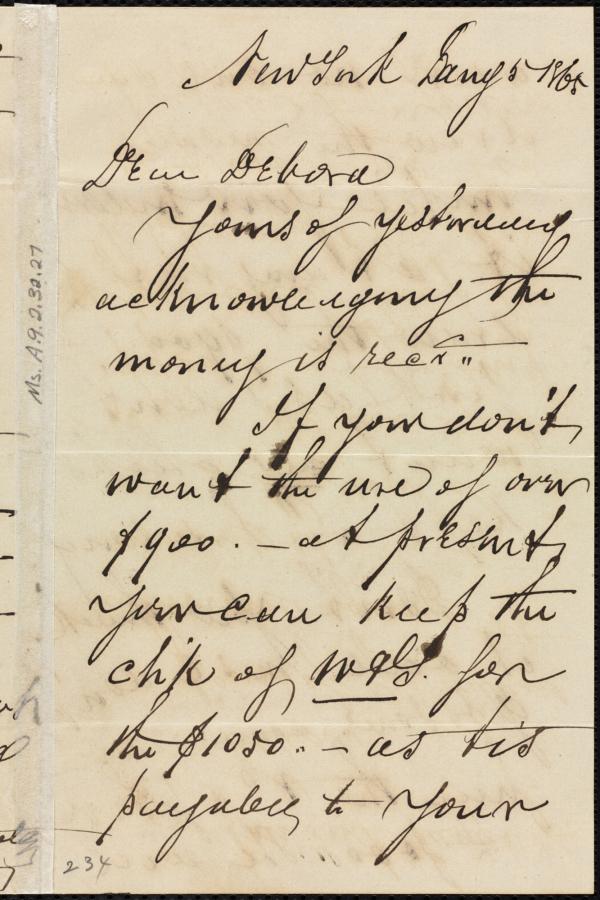 New York Jany 5 1865
Dear Debora
Yours of yesterday
acknowledging the
money is recd..
If you don't
want the use of over
$900. - at present
you can keep the
chk of W&S. for
the $1050.. - as tis
payable to your
Ms. A.9.2.32.27
234